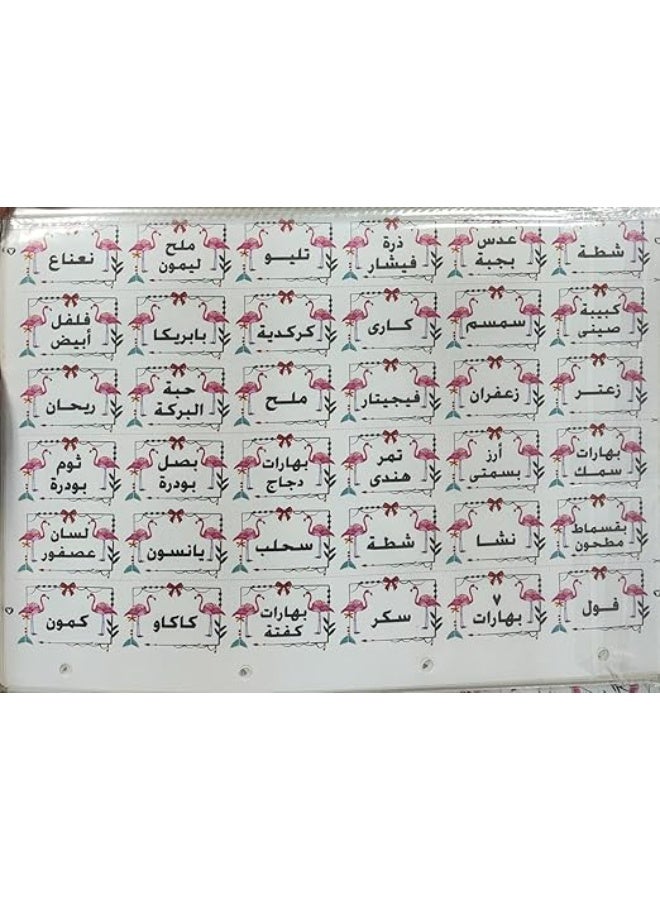 شطة
عدس
بجبة
ذرة
فيشار
تليو
ملح
ليمون
نعناع
كبيبة
صينى
سمسم
كارى
كركدية
بابريكا
فلفل
أبيض
زعتر
زعفران
فيجيتار
ملح
حبة
البركة
ريحان
بهارات
سمك
أرز
بسمتى
تمر
هندى
بهارات
دجاج
بصل
بودرة
ثوم
بودرة
بقسماط
مطحون
نشا
شطة
سحلب
يانسون
لسان
عصفور
فول
٧
بهارات
سكر
بهارات
كفتة
كاكاو
كمون